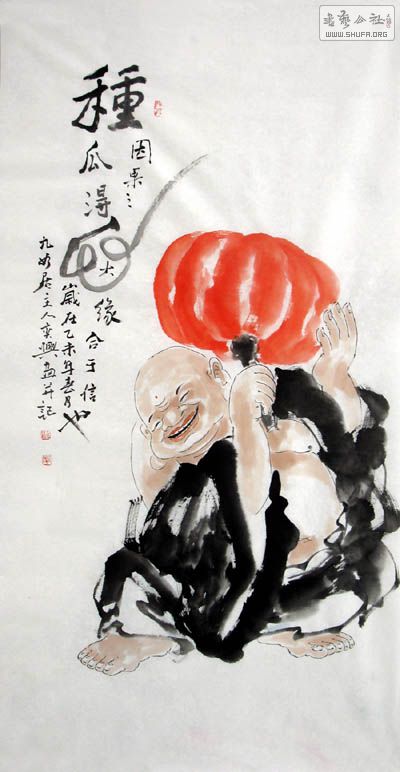 書藝公社
WWW.SHUFA.ORG
種瓜得瓜
因果之
大緣合于信也
歲在乙未年春月
九如居主人奕興画并記